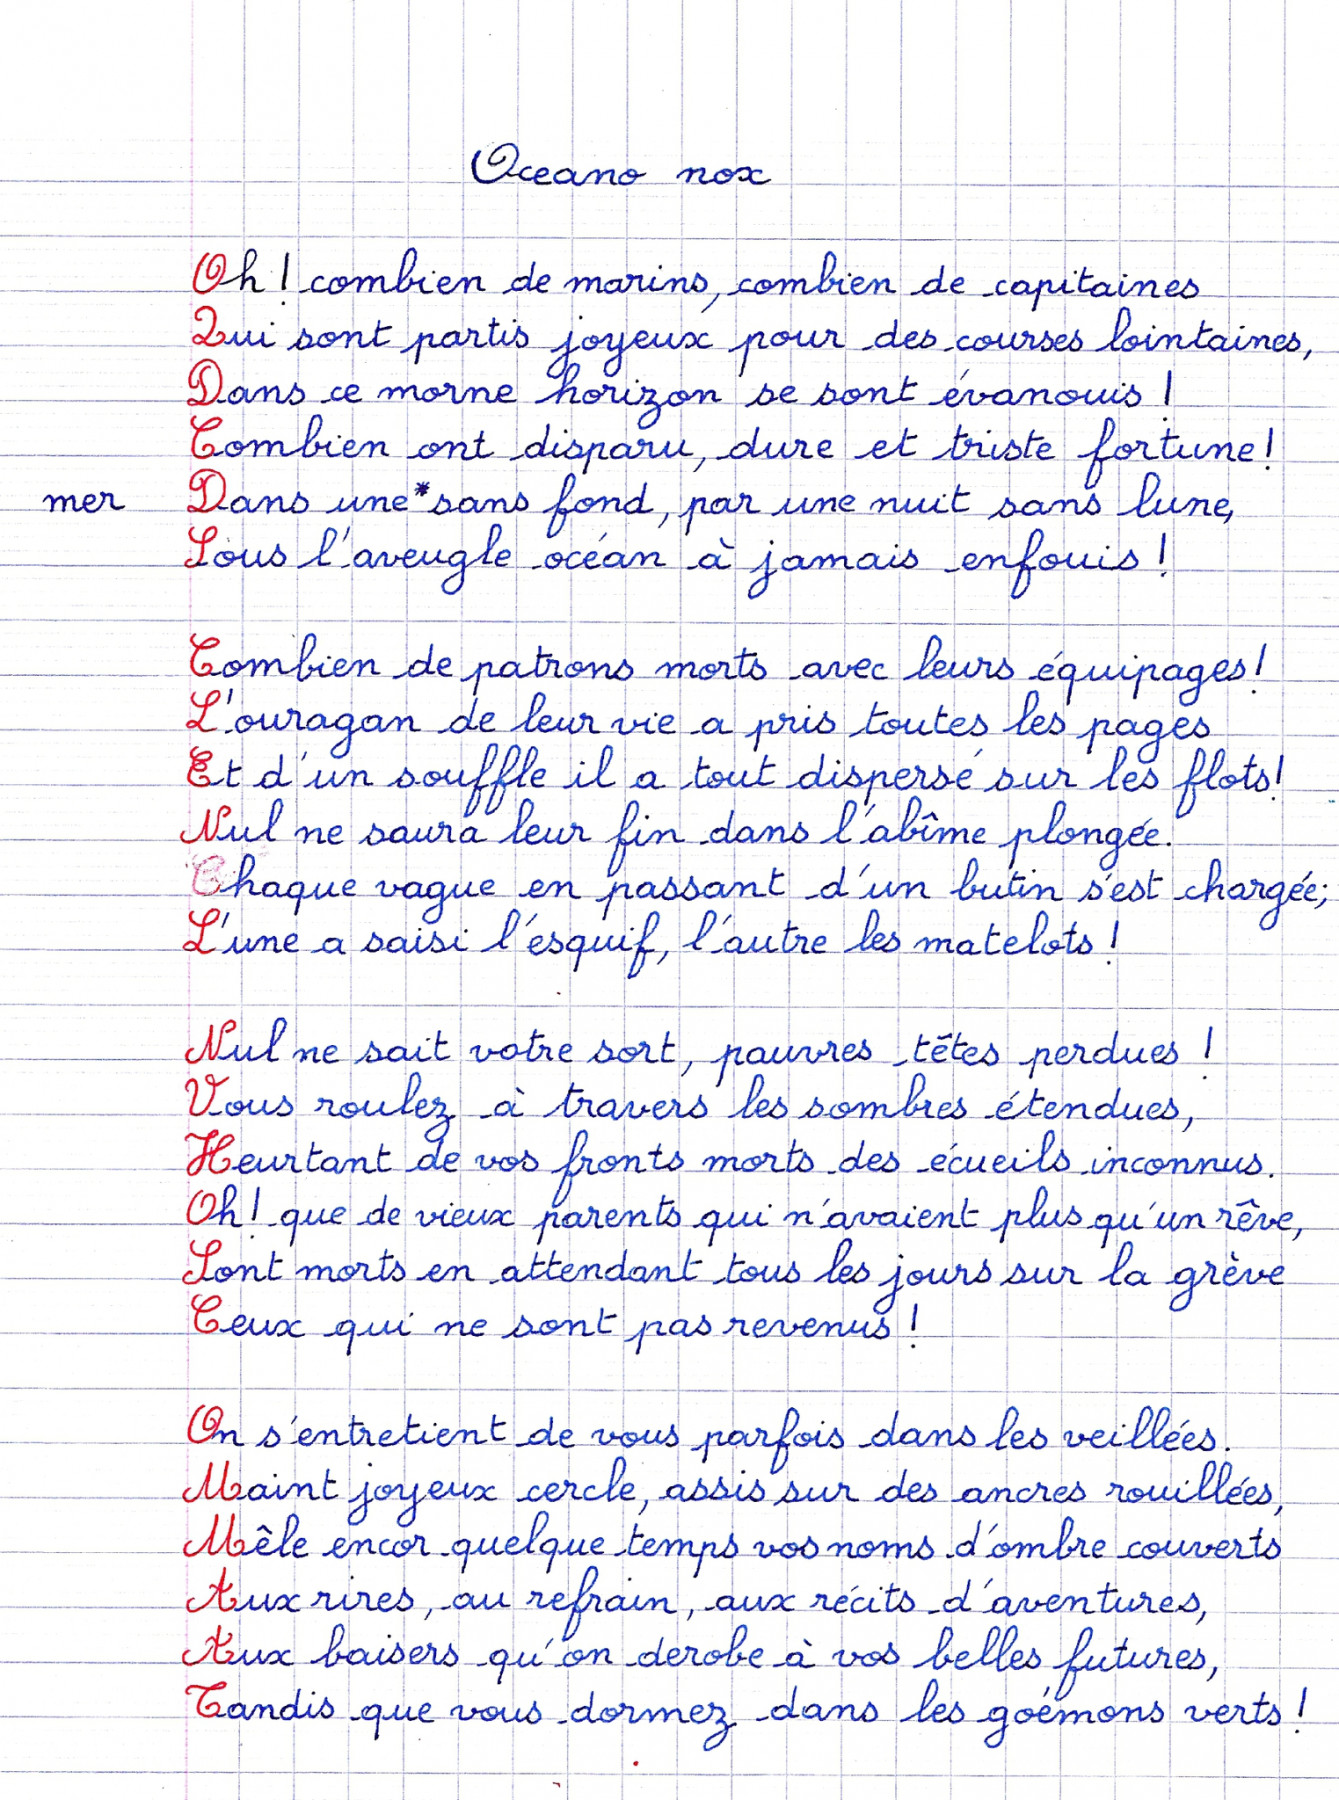 Oceano nox
Oh ! combien de marins, combien de capitaines
Qui sont partis joyeux pour des courses lointaines,
Dans ce morne horizon se sont évanouis !
Combien ont disparu, dure et triste fortune !
mer Dans une* sans fond, par une nuit sans lune,
Sous l'aveugle océan à jamais enfouis !
Combien de patrons morts avec leurs équipages !
L'ouragan de leur vie a pris toutes les pages
Et d'un souffle il a tout dispersé sur les flots !
Nul ne saura leur fin dans l'abîme plongée.
Chaque vague en passant d'un butin s'est chargée ;
L'une a saisi l'esquif, l'autre les matelots !
Nul ne sait votre sort, pauvres têtes perdues !
Vous roulez à travers les sombres étendues,
Heurtant de vos fronts morts des écueils inconnus.
Oh ! que de vieux parents qui n'avaient plus qu'un rêve,
Sont morts en attendant tous les jours sur la grève
Ceux qui ne sont pas revenus !
On s'entretient de vous parfois dans les veillées.
Maint joyeux cercle, assis sur des ancres rouillées,
Mêle encor quelque temps vos noms d'ombre couverts
Aux rires, au refrain, aux récits d'aventures,
Aux baisers qu'on derobe à vos belles futures,
Tandis que vous dormez dans les goémons verts !